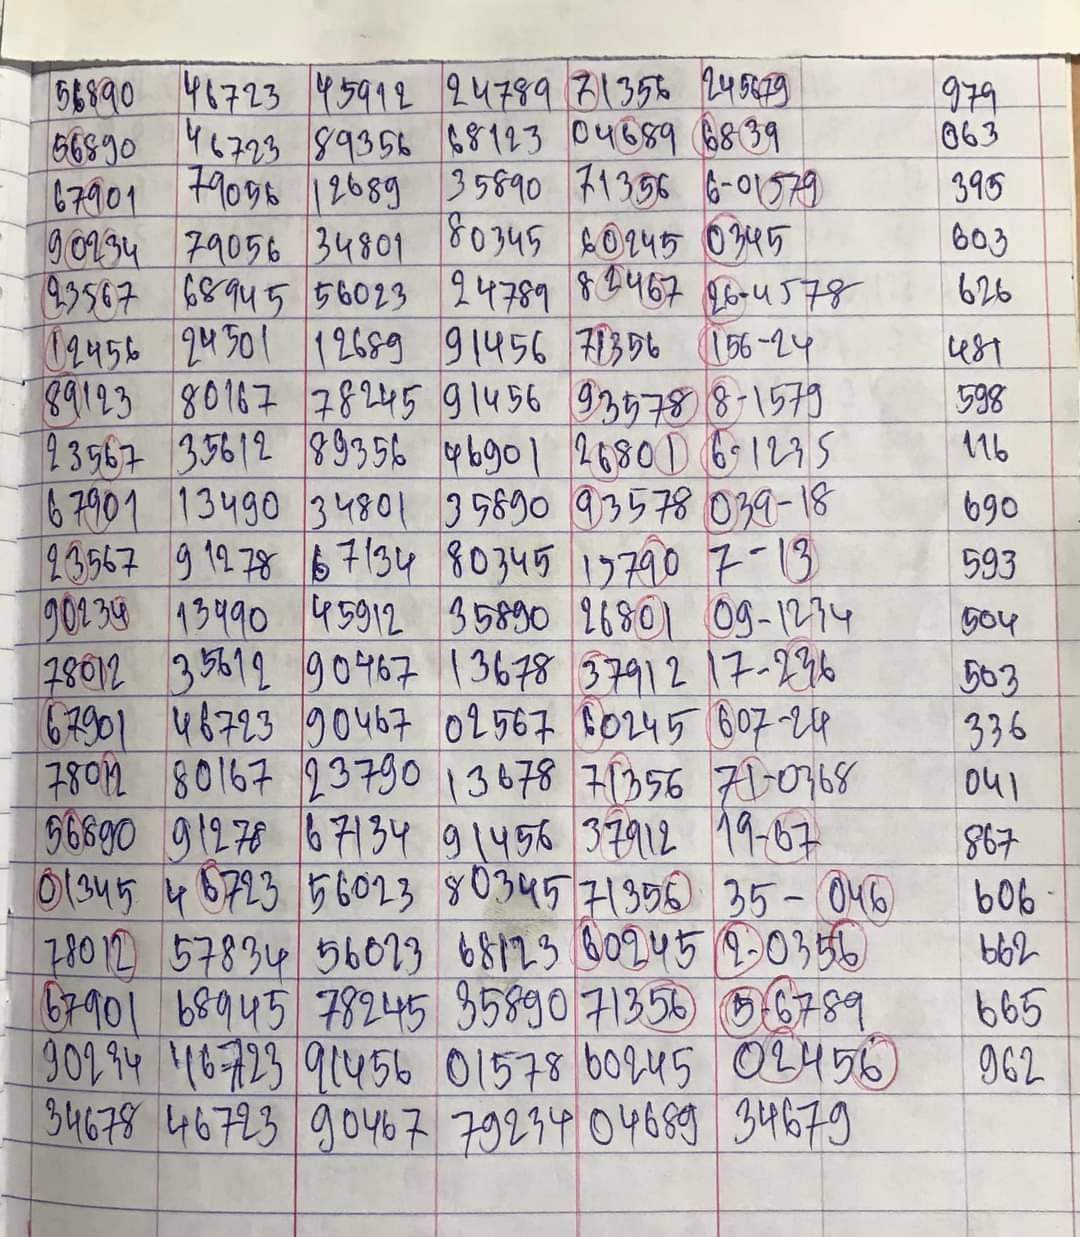 56890 46723 45912 24789 71356 245679 979
56890 46723 89356 68123 04689 6839 063
67901 79056 12689 35890 71356 6-01579 395
90234 79056 34801 80345 60245 0345 603
23567 68945 56023 24789 82467 26-4578 626
12456 24501 12689 91456 71356 156-24 481
89123 80167 78245 91456 93578 8-1579 598
23567 35612 89356 46901 26801 6-1235 116
67901 13490 34801 35890 93578 039-18 690
23567 91278 67134 80345 15790 7-13 593
90234 13490 45912 35890 26801 09-1234 504
78012 35612 90467 13678 37912 17-236 503
67901 46723 90467 02567 60245 607-24 336
78012 80167 23790 13678 71356 71-0368 041
56890 91278 67134 91456 37912 19-67 867
01345 46723 56023 80345 71356 35-046 606
78012 57834 56023 68123 60245 2-0356 662
67901 68945 78245 35890 71356 5-6789 665
90234 46723 91456 01578 60245 02456 962
34678 46723 90467 79234 04689 34679